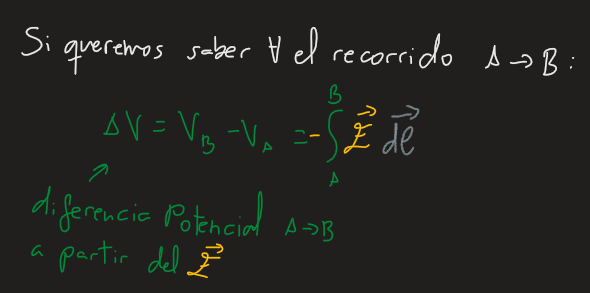 Si queremos saber ∀ el recorrido A → B:
ΔV = V_B - V_A = -∫_A^B E⃗ dℓ⃗
diferencia potencial A→B
a partir del E⃗